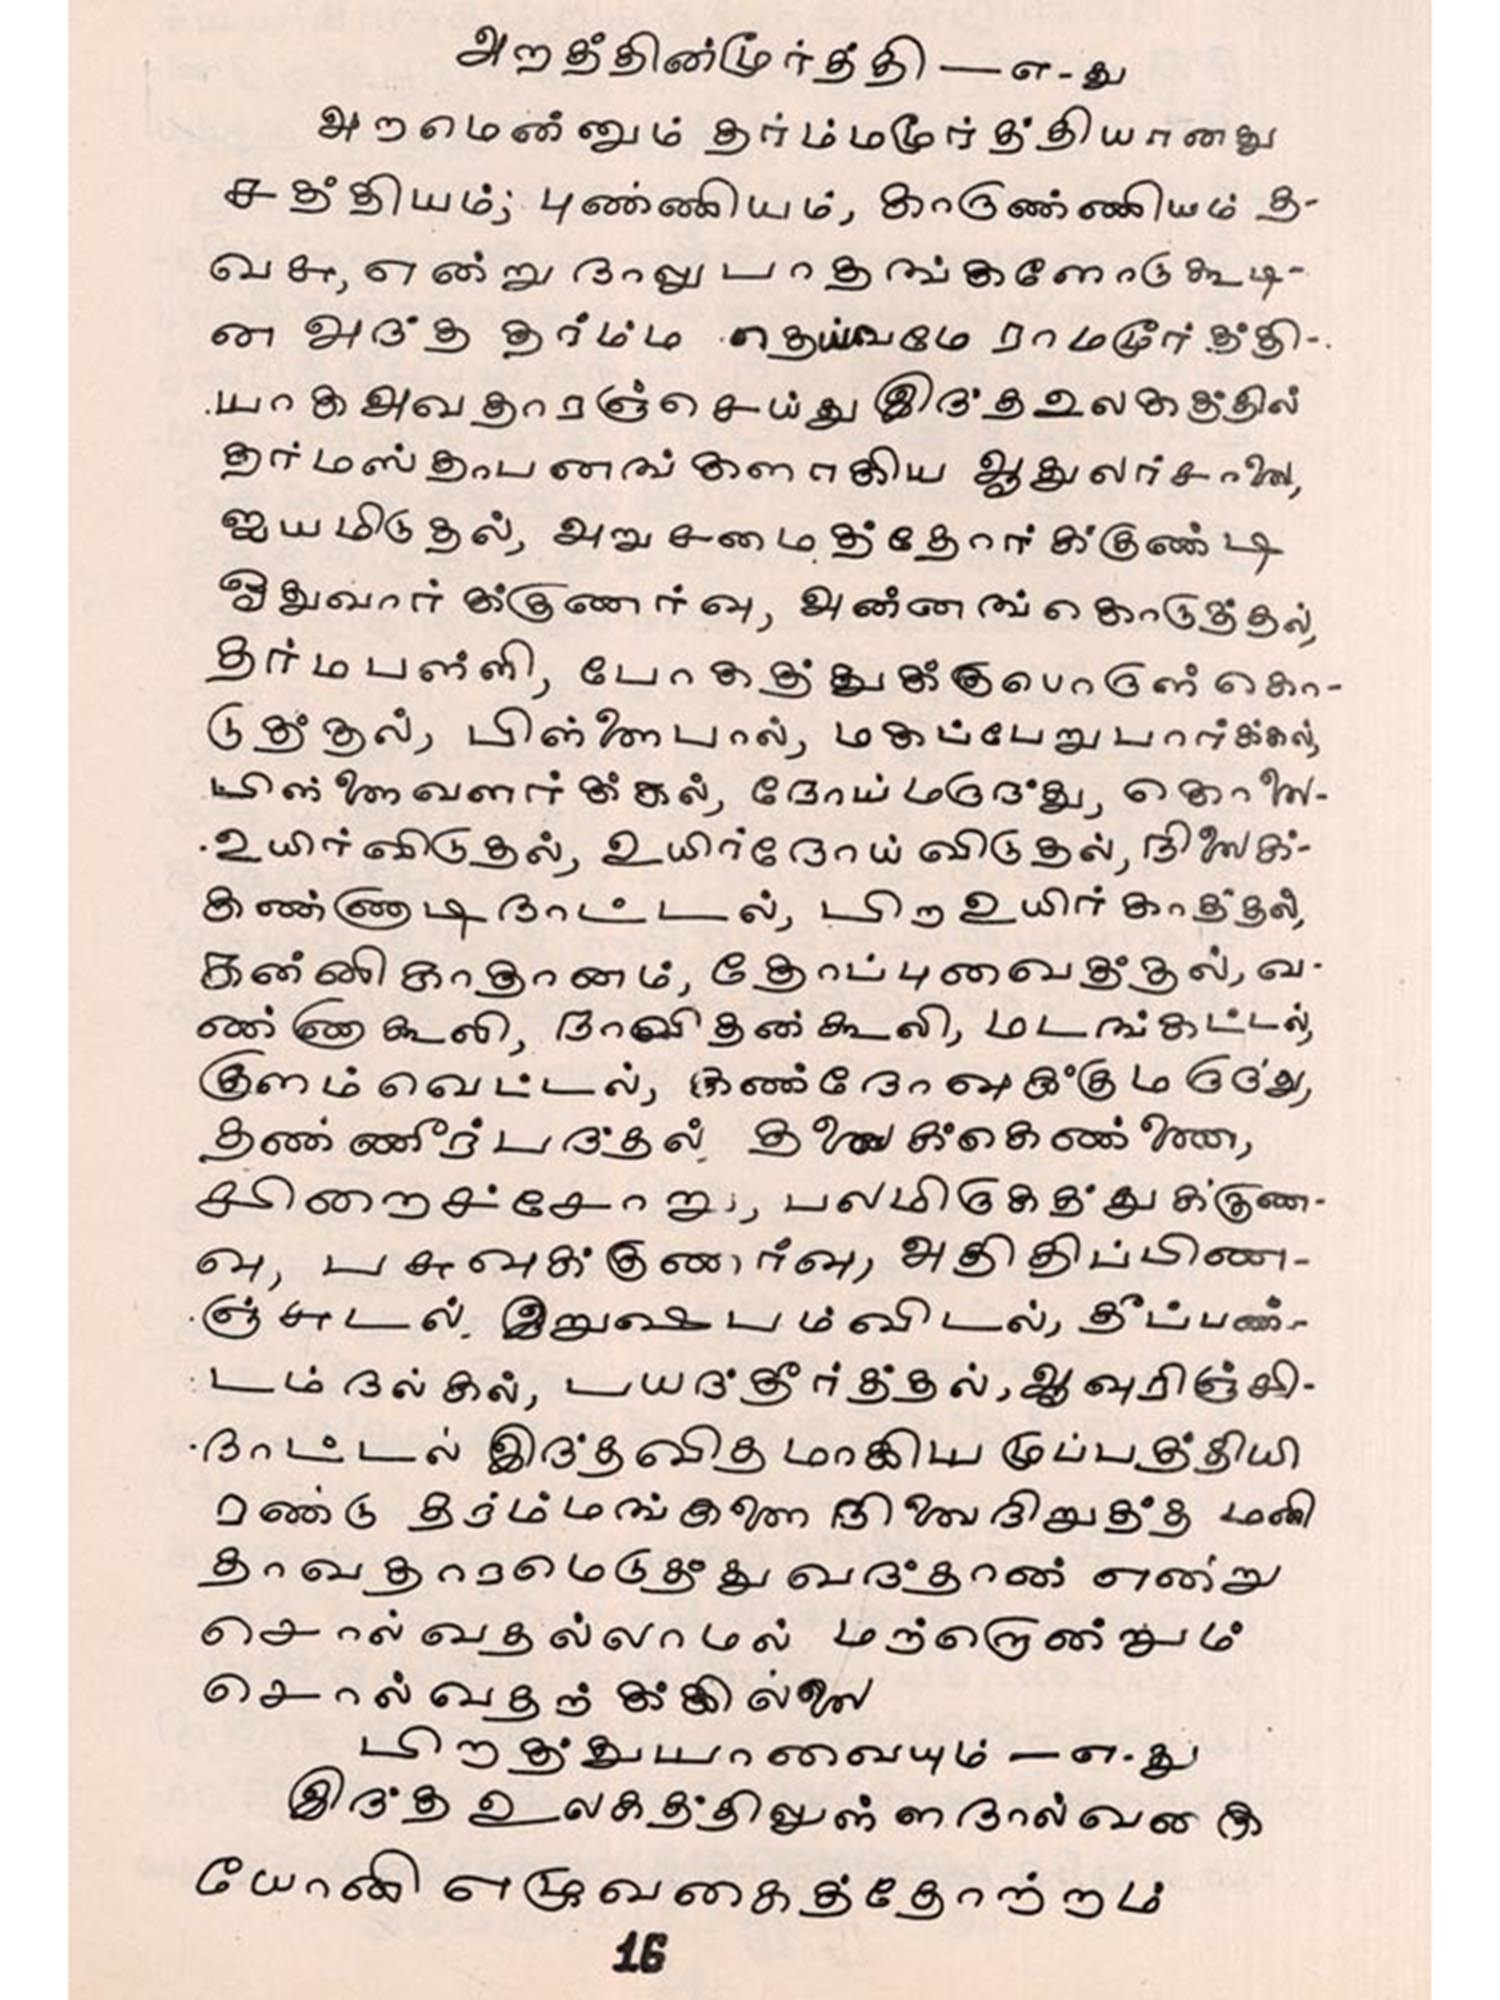 அறத்தின்மூர்த்தி — எ-து
அறமென்னும் தர்ம்மமூர்த்தியானது
சத்தியம்; புண்ணியம், காருண்ணியம் த-
வசு, என்று நாலு பாதங்களோடுகூடி-
ன அந்த தர்ம்ம தெய்வமே ராமமூர்த்தி-
யாக அவதாரஞ்செய்து இந்த உலகத்தில்
தர்மஸ்தாபனங்களாகிய ஆதுலர்சாலை,
ஐயமிடுதல், அறுசமைத்தோர்க்குண்டி
ஓதுவார்க்குணர்வு, அன்னங்கொடுத்தல்,
தர்மபள்ளி, போகத்துக்குபொருள் கொ-
டுத்தல், பிள்ளைபால், மகப்பேறுபார்க்கல்,
பிள்ளைவளர்க்கல், நோய்மருந்து, கொலை-
உயிர்விடுதல், உயிர்நோய் விடுதல், நிலைக்-
கண்ணாடிநாட்டல், பிறஉயிர்காத்தல்,
கன்னிகாதானம், தோப்புவைத்தல், வ-
ண்ணாகூலி, நாவிதன்கூலி, மடங்கட்டல்,
குளம்வெட்டல், கண்நோவுக்குமருந்து,
தண்ணீர்பந்தல், தலைக்கெண்ணை,
சிறைச்சோறு, பலமிருகத்துக்குண-
வு, பசுவுக்குணர்வு, அதிதிப்பிண-
ஞ்சுடல். இறுஷபம்விடல், தீப்பண்-
டம் நல்கல், பயந்தீர்த்தல், ஆவுரிஞ்சி-
நாட்டல் இந்தவிதமாகிய முப்பத்தியி
ரண்டு தர்ம்மங்களை நிலைநிறுத்த மனி
தாவதாரமெடுத்து வந்தான் என்று
சொல்வதல்லாமல் மற்றொன்றும்
சொல்வதற்க்கில்லை
பிறத்துயாவையும் — எ-து
இந்த உலகத்திலுள்ள நால்வகை
யோனி எழுவகைத்தோற்றம்
16